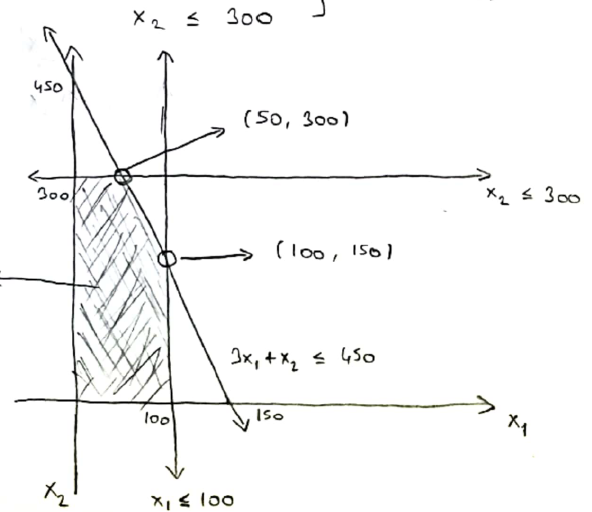 x₂ ≤ 300
450
(50, 300)
300
x₂ ≤ 300
(100, 150)
3x₁ + x₂ ≤ 450
100
150
x₁
x₂
x₁ ≤ 100